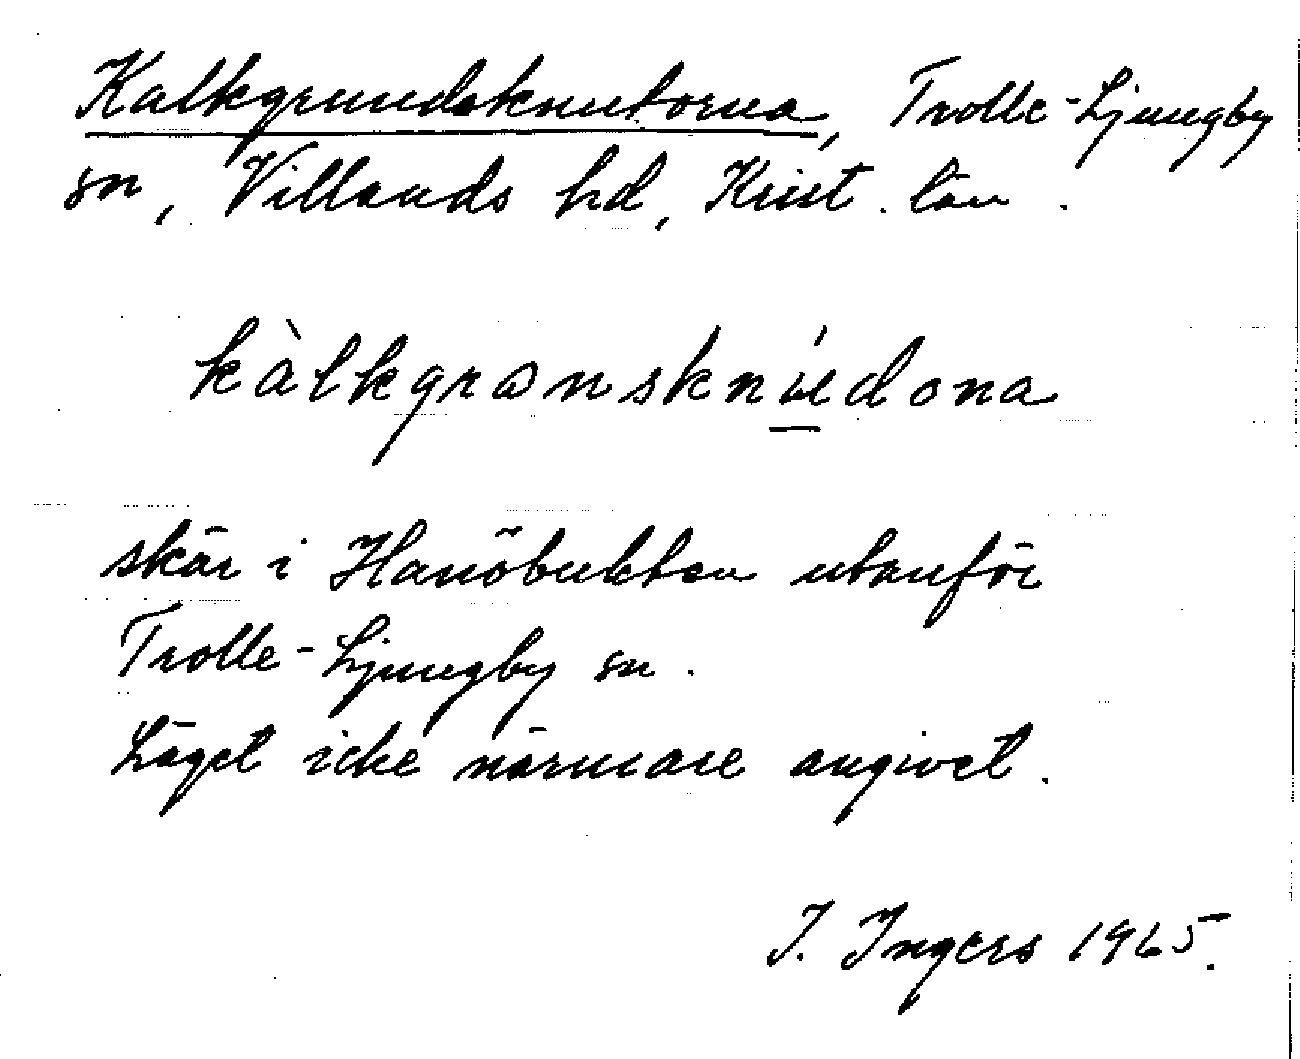 Kalkgrundsknutorna, Trolle-Ljungby
sn, Villands hd, Krist. län.
skär i Hanöbukten utanför
Trolle-Ljungby sn.
Läget icke närmare angivet.
I. Ingers 1965.